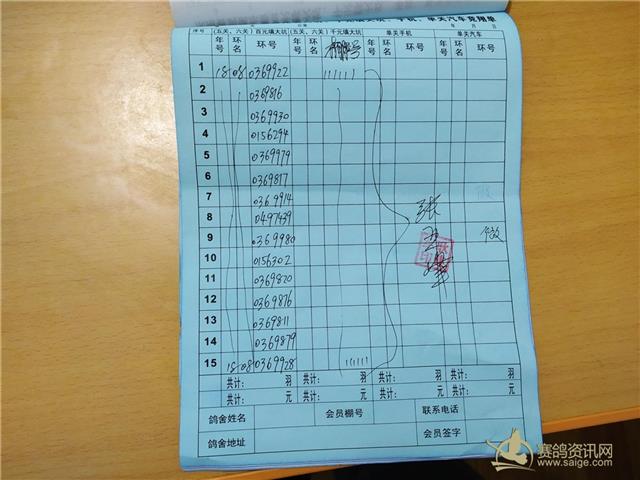 年 月 日
序号 (五关、六关) 百元填大坑 (五关、六关) 千元填大坑 单关手机 单关汽车
年号 环名 环号 年号 环名 棚号 年号 环名 环号 年号 环名 环号
1 18 08 0369922 111111
2 0369816
3 0369930
4 0156294
5 0369979
6 0369817
7 0369914
8 0497439
9 0369980
10 0156302
11 0369820
12 0369876
13 0369811
14 0369879
15 18 08 0369928 11111
共计: 羽 共计: 羽 共计: 羽 共计: 羽
共计: 元 共计: 元 共计: 元 共计: 元
鸽舍姓名 会员棚号 联系电话
鸽舍地址 会员签字
张
赛鸽资讯网
www.saige.com